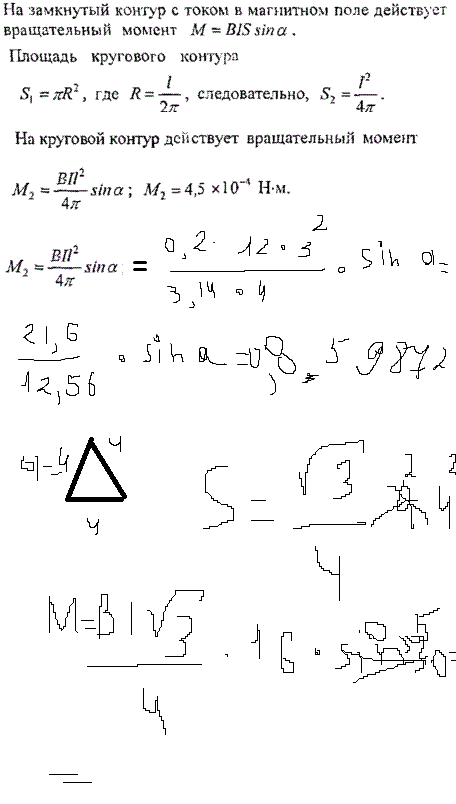 На замкнутый контур с током в магнитном поле действует
вращательный момент M = BIS sin α.
Площадь кругового контура
S₁ = πR², где R = l/2π, следовательно, S₂ = l²/4π.
На круговой контур действует вращательный момент
M₂ = BIl²/4π sin α; M₂ = 4,5 ×10⁻⁴ Н·м.
M₂ = BIl²/4π sin α = 0,2 · 12 · 3²/3,14 · 4 · sin a =
21,6/12,56 · sin a = 0,859872
a=4 4
4
S = √3/4 4²
M = BI√3/4 · 16 ·